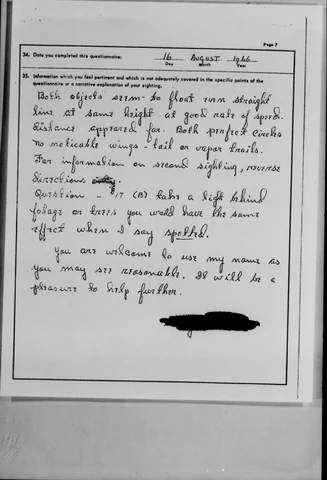 Page 7
34. Date you completed this questionnaire: 16 AUGUST 1966
Day Month Year
35. Information which you feel pertinent and which is not adequately covered in the specific points of the
questionnaire or a narrative explanation of your sighting.
Both objects seem to float even straight
line at same height at good rate of speed.
distance appeared far. Both perfect circles
no noticable wings - tail or vapor trails.
For information on second sighting, reverse
directions only.
Question - #17 (B) take a light behind
folage or trees you would have the same
effect when I say spotted.
you are welcome to use my name as
you may see reasonable. It will be a
pleasure to help further.